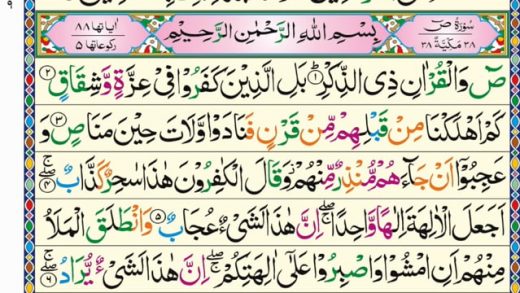 سُوْرَةُ صٓ ٣٨ مَكِّيَّةٌ ٣٨ بِسْمِ اللهِ الرَّحْمٰنِ الرَّحِيْمِ اٰيَاتُهَا ٨٨ رُكُوْعَاتُهَا ٥
صٓ وَالْقُرْاٰنِ ذِى الذِّكْرِ ۝١ بَلِ الَّذِيْنَ كَفَرُوْا فِىْ عِزَّةٍ وَّشِقَاقٍ ۝٢
كَمْ اَهْلَكْنَا مِنْ قَبْلِهِمْ مِّنْ قَرْنٍ فَنَادَوْا وَّلَاتَ حِيْنَ مَنَاصٍ ۝٣ وَ
عَجِبُوْٓا اَنْ جَآءَهُمْ مُّنْذِرٌ مِّنْهُمْ وَقَالَ الْكٰفِرُوْنَ هٰذَا سٰحِرٌ كَذَّابٌ ۝٤
اَجَعَلَ الْاٰلِهَةَ اِلٰهًا وَّاحِدًا اِنَّ هٰذَا لَشَىْءٌ عُجَابٌ ۝٥ وَانْطَلَقَ الْمَلَاُ
مِنْهُمْ اَنِ امْشُوْا وَاصْبِرُوْا عَلٰٓى اٰلِهَتِكُمْ اِنَّ هٰذَا لَشَىْءٌ يُّرَادُ ۝٦